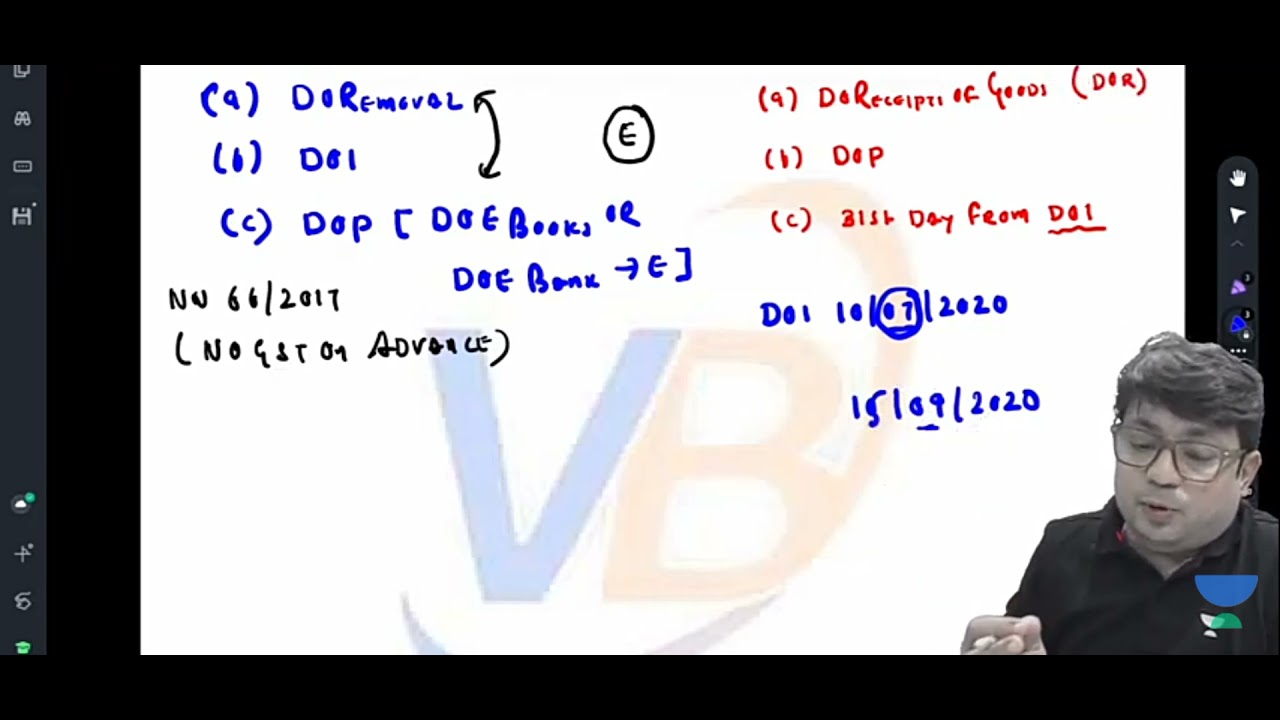 (a) DORemoval
(b) DOI
(c) DOP [ DOE Books OR
DOE Bank → E ]
NN 66/2017
(NO GST On ADVANCE)
E
(a) DOReceipts of Goods (DOR)
(b) DOP
(c) 31st Day From DOI
DOI 10/07/2020
15/09/2020
VB